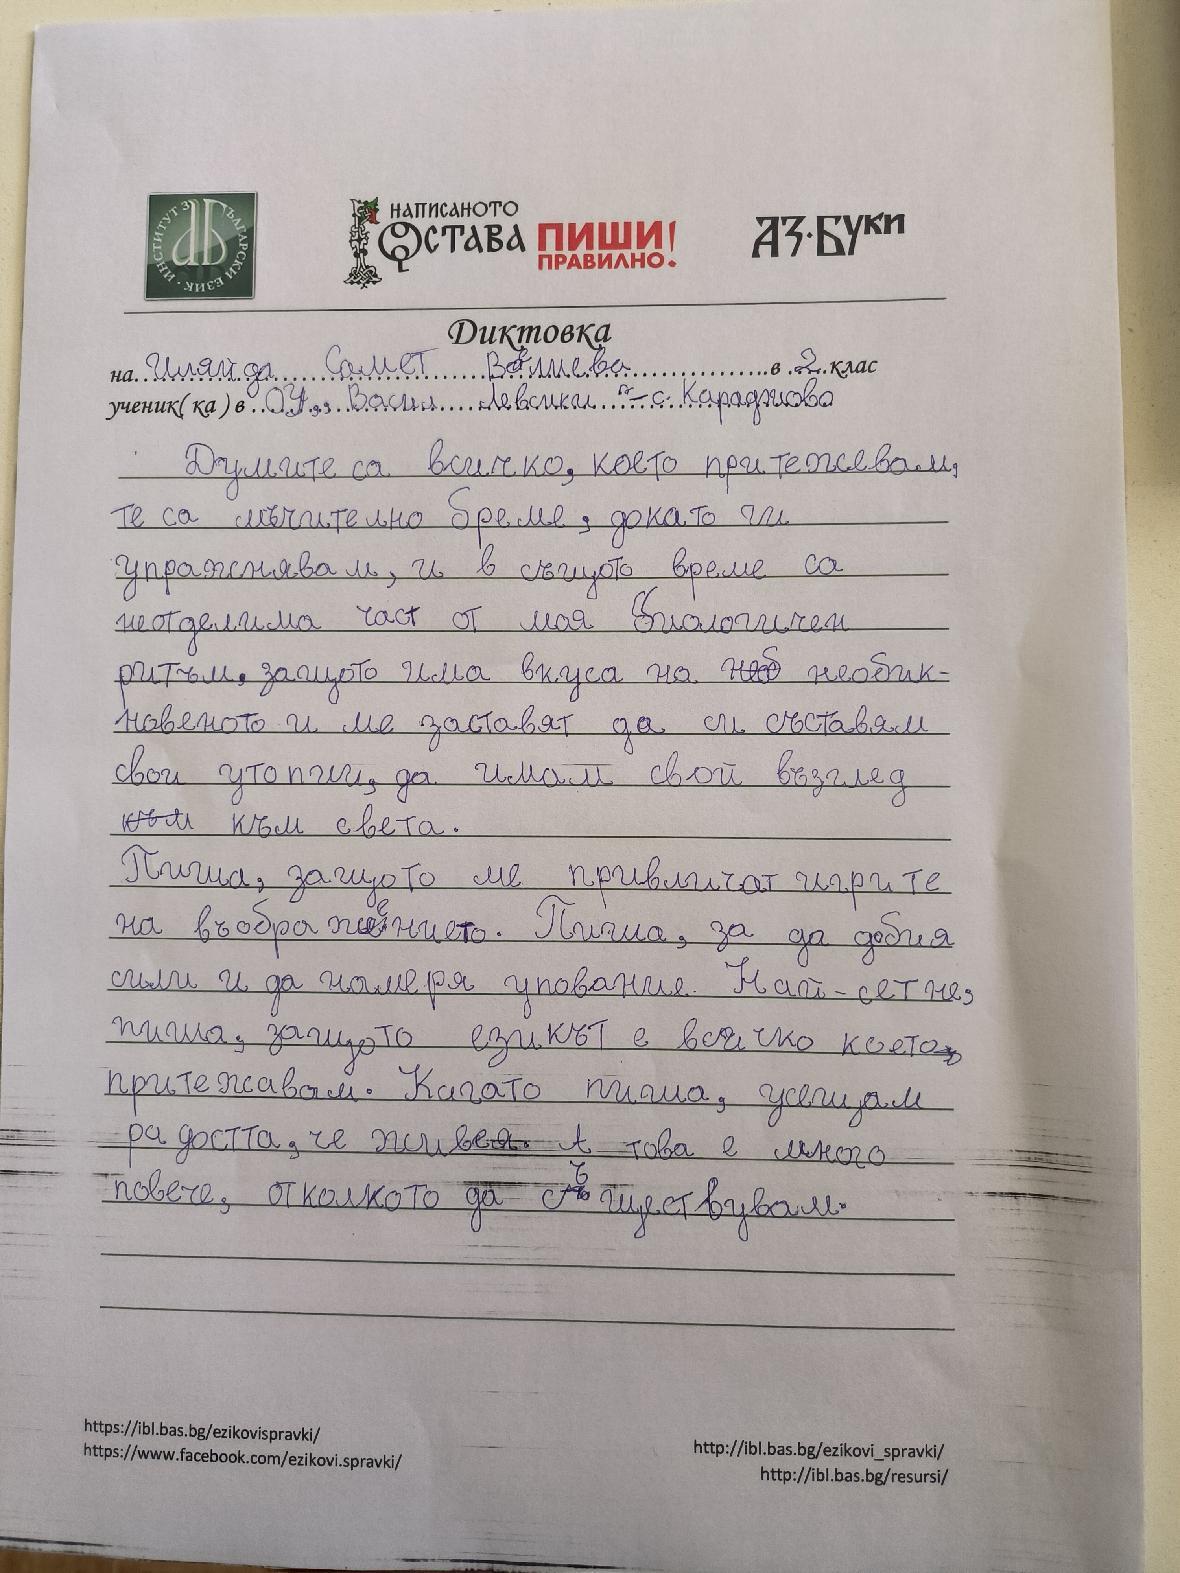 ИНСТИТУТ ЗА БЪЛГАРСКИ ЕЗИК
НАПИСАНОТО
ОСТАВА ПИШИ!
ПРАВИЛНО!
АЗ·БУКИ
Диктовка
на Илайда Самет Велиева в 2 клас
ученик(ка) в ОУ „Васил Левски" - с. Караджово
Думите са всичко, което притежсевам,
те са мъчително бреме, докато ги
упражнявам, и в същото време са
неотделима част от моя биологичен
ритъм, защото има вкуса на неоо необик-
новеното и ме заставят да си съставям
свои утопии, да имам свой възглед
към към света.
Пиша, защото ме привличат игрите
на въображението. Пиша, за да добия
сили и да намеря упование. Най-сетне,
пиша, защото езикът е всичко което
притежавам. Кагато пиша, усещам
радостта, че живея. А това е много
повече, отколкото да съществувам.
https://ibl.bas.bg/ezikovispravki/
https://www.facebook.com/ezikovi.spravki/
http://ibl.bas.bg/ezikovi_spravki/
http://ibl.bas.bg/resursi/